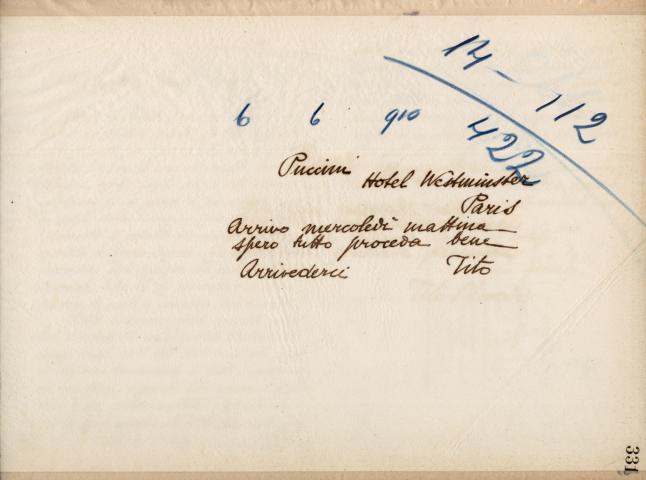 14 - 112
422
6 6 910
Puccini
Hotel Westminster
Paris
Arrivo mercoledì mattina
spero tutto proceda bene
Arrivederci Tito
331